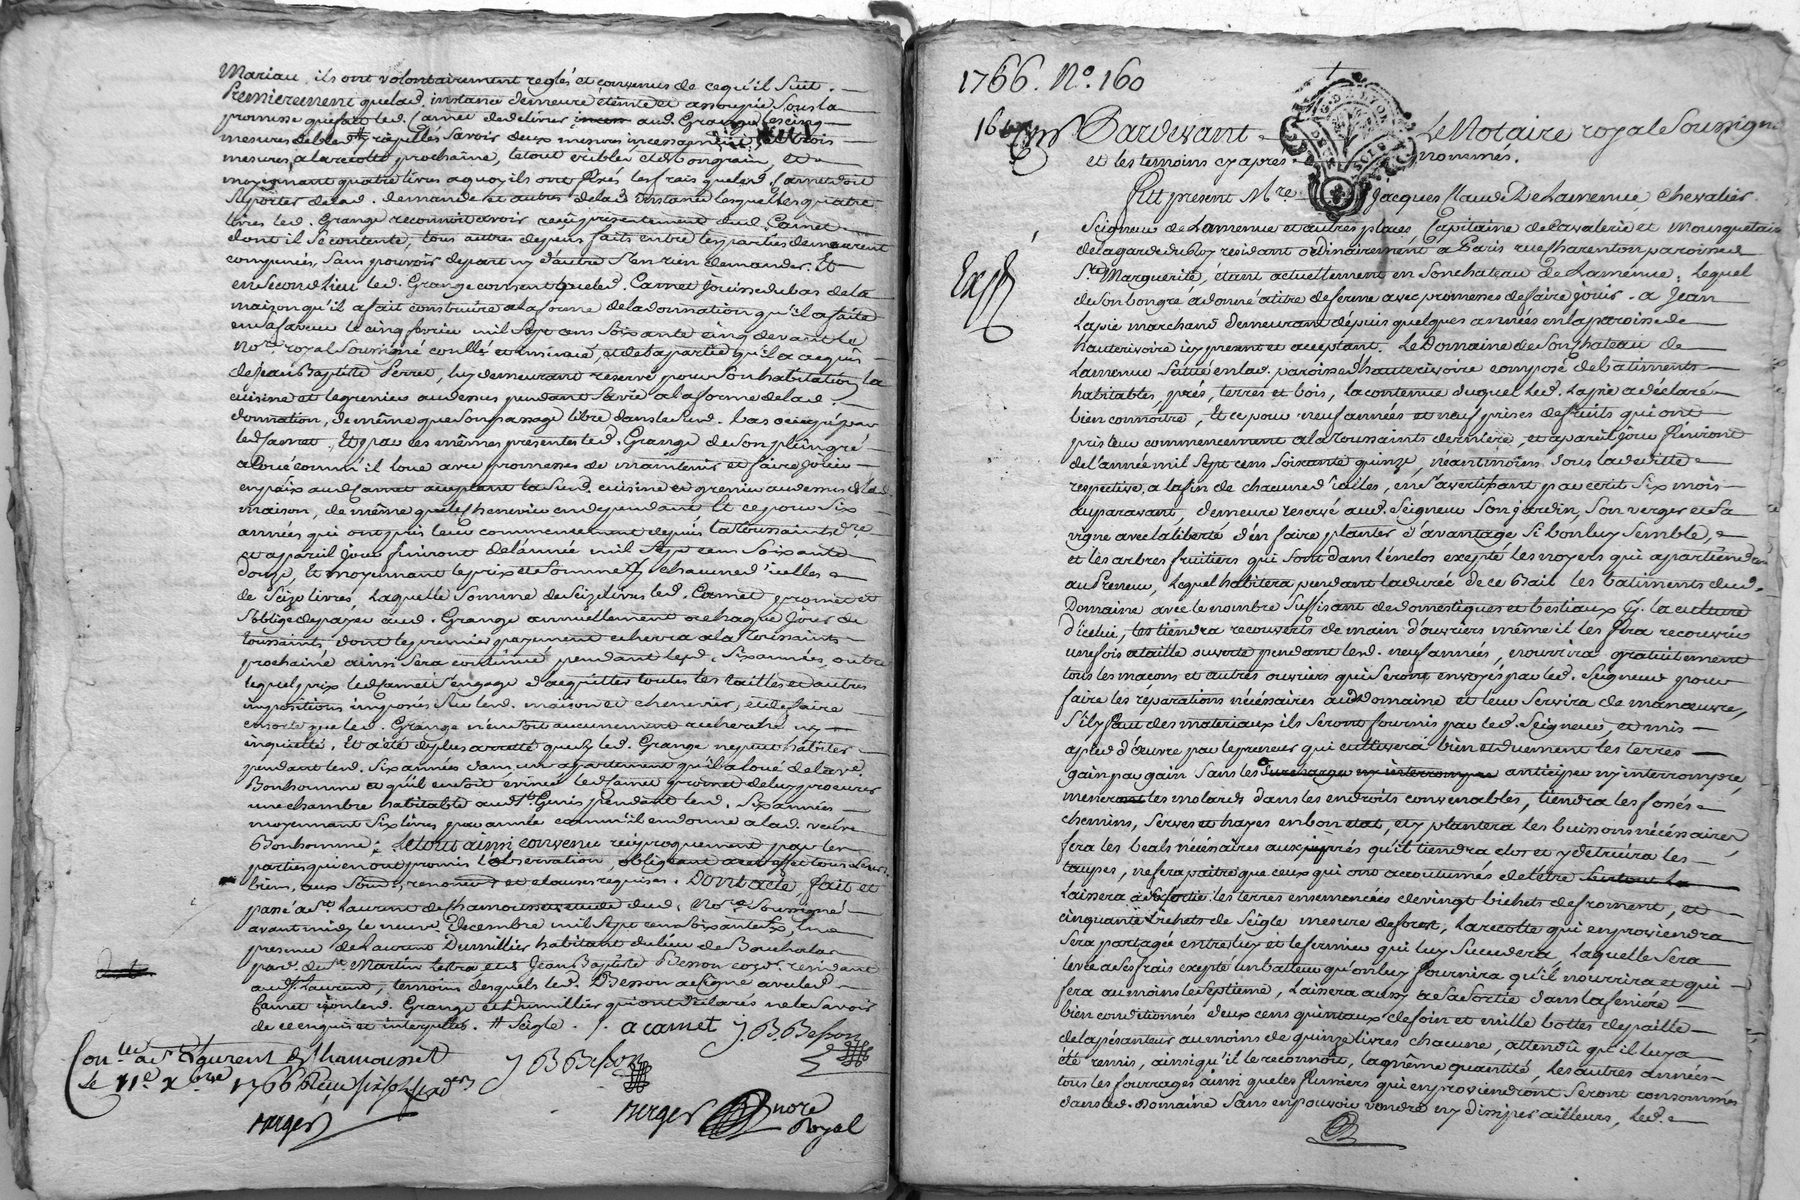 Mariau, ils ont volontairement reglés et convenus de ce qu'il suit.
Premierement que lad. instance demeure éteinte et assoupie sous la
promesse que fait led. Camet de delivrer aud. Grange les cinq
mesures de bled # répétés savoir deux mesures incessament, et les trois
mesures, a la recolte prochaine, le tout crible et de bon grain, et
moyennant quatre livres a quoy ils ont fixés les frais que led. Camet doit
suporter de lad. demande et autres de lad. instance lesquelles quatre
livres led. Grange reconnoit avoir reçû presentement dud. Camet
dont il se contente, tous autres depens faits entre les parties demeurent
compensés, sans pouvoir de part ny d'autre s'en rien demander. Et
en second lieu led. Grange consent que led. Camet jouisse du bas de la
maison qu'il a fait construire a la forme de la donnation qu'il a faite
en sa faveur le cinq fevrier mil sept cens soixante cinq devant le
No.re royal soussigné conllé et insinué, et de la partie qu'il a acquis
de Jean Baptiste Perret, luy demeurant reservé pour son habitation la
cuisine et le grenier au dessus pendant sa vie a la forme de lad.
donnation, de même que son passage libre dans le sud. bas occupé par
led. Camet. Et par ces mêmes presentes led. Grange de son plein gré
a loué comm'il loue avec promesses de maintenir et faire jouir
en paix aud. Camet acceptant la sud. cuisine et grenier au dessus de lad.
maison, de même que le chenevier en dependant Et ce pour six
années qui ont pris leur commencement depuis la Toussaints d.re
et a pareil jour finiront de l'année mil sept cens soixante
douze, Et moyennant le prix et somme chacune d'icelles
de seize livres, laquelle somme de seize livres led. Camet promet et
s'oblige de payer aud. Grange annuellement a chaque jour de
Toussaints, dont le premier payement echerra a la Toussaints
prochaine ainsi sera continué pendant lesd. six années, outre
lequel prix led. Camet s'engage d'acquitter toutes les tailles et autres
impositions imposées sur lesd. maison et chenevier, et de faire
ensorte que led. Grange n'en soit aucunement recherché ny
inquietté. Et a été de plus arretté que si led. Grange ne peut habiter
pendant lesd. six années dans un apartement qu'il a loué de la ve.
Bonhomme et qu'il en soit evincé led. Camet promet de luy procurer
une chambre habitable aud. St. Genis pendant lesd. six années
moyennant six livres par année comm'il en donne a lad. veuve
Bonhomme. Le tout ainsi convenu reciproquement par les
parties qui en ont promis l'observation, obligeant a cet effet tous leurs
biens, aux soum.s, renon.s et clauses requises. Dont acte, fait et
passé a St. Laurent de Chamousset etude dud. No.re soussigné
avant midy le neuf Decembre mil sept cens soixante six, en
presence de Laurent Dumillier habitant du lieu de Bouchala
par. de St. Martin Lestra et de Jean Baptiste Besson cord.r residant
aud. St. Laurent, temoins desquels led. Besson a signé avec led.
Camet non led. Grange et Dumillier qui ont declarés ne le savoir
de ce enquis et interpellés. # seigle.
a camet J. B. Besson
J B Besson
Con.lle a St. Laurent de Chamousset
le 11e Xbre 1766 Reçu six sols six den.rs
Merger
Merger nore
Royal
1766. No. 160
Pardevant Le Notaire royal soussigné
et les temoins cy apres nommés.
Fut present Mre Jacques Claude De Lamenue Chevalier
Seigneur de Lamenue et autres places, Capitaine de Cavalerie et Mousquetaire
de la garde du Roy residant ordinairement a Paris rue Charenton paroisse
Ste Marguerite, étant actuellement en son chateau de Lamenue. Lequel
de son bon gré a donné a titre de ferme avec promesses de faire jouir a Jean
Lapie marchand demeurant depuis quelques années en la paroisse de
hauterivoire icy present et acceptant. Le Domaine de son chateau de
Lamenue situé en lad. paroisse d'hauterivoire composé de batiments
habitables, prés, terres et bois, la contenue duquel led. Lapie a déclaré
bien connoitre, Et ce pour neuf années et neuf prises de fruits qui ont
pris leur commencement a la Toussaints derniere, et a pareil jour finiront
de l'année mil sept cens soixante quinze, néantmoins sous la dedite
respective a la fin de chacune d'icelles, en s'avertissant par écrit six mois
auparavant, demeure reservé aud. Seigneur son jardin, son verger et sa
vigne avec la liberté d'en faire planter d'avantage si bon luy semble,
et les arbres fruitiers qui sont dans l'enclos excepté les noyers qui apartiendront
au Preneur, Lequel habitera pendant la durée de ce Bail les batiments dud.
Domaine avec le nombre suffisant de domestiques et bestiaux p.r la culture
d'icelui, les tiendra recouverts de main d'ouvriers même il les fera recouvrir
une fois a taille ouverte pendant lesd. neuf années, nourrira gratuitement
tous les maçons et autres ouvriers qui seront envoyés par led. Seigneur pour
faire les réparations nécéssaires aud. domaine et leur servira de manœuvre,
s'il y faut des materiaux ils seront fournis par led. Seigneur, et mis
a pied d'œuvre par le preneur qui cultivera bien et duement les terres
gain par gain sans les surcharger ny interrompre anticiper ny interrompre,
menera les molards dans les endroits convenables, tiendra les fossés
chemins, serves et hayes en bon etat, et y plantera les buissons nécéssaires,
fera les beals nécéssaires aux prés qu'il tiendra clos et y detruira les
taupes, ne fera paitre que ceux qui ont accoutumés de l'être
Laissera a sa sortie les terres ensemencées de vingt bichets de froment, et
cinquante bichets de seigle mesure de forest, la recolte qui en proviendra
sera partagée entre luy et le fermier qui luy succedera, laquelle sera
levée a ses frais excepté un batteur qu'on luy fournira qu'il nourrira et qui
sera au moins le septieme, Laissera aussy a sa sortie dans la feniere
bien conditionnés deux cens quintaux de foin et mille bottes de paille
de la pésanteur au moins de quinze livres chacune, attendu qu'il luy a
été remis, ainsi qu'il le reconnoit, la même quantité, les autres années
tous les fourrages ainsi que les fumiers qui en proviendront seront consommés
dans led. Domaine sans en pouvoir vendre ny dissiper ailleurs, led.